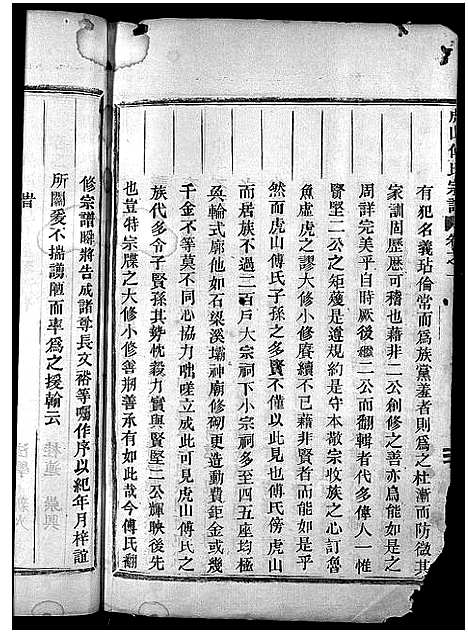 虎山傅氏宗譜 卷之一
有犯名義玷倫常而為族黨羞者則為之杜漸而防微其
家訓固歷歷可稽也藉非二公創修之善亦烏能如是之
周詳完美乎自時厥後繼二公而翻輯者代多偉人一惟
賢堅二公之矩矱是遵規約是守本敬宗收族之心訂魯
魚虛虎之謬大修小修賡續不已藉非賢者而能如是乎
然而虎山傅氏子孫之多賢不僅以此見也傅氏傍虎山
而居族不過三百戶大宗祠下小宗祠多至四五座均極
奐輪式廓他如石梁溪壩神廟修砌更造動費鉅金或幾
千金不等莫不同心協力咄嗟立成此可見虎山傅氏之
族代多令子賢孫其勢忱毅力實與賢堅二公輝映後先
也豈特宗牒之大修小修善剏善承有如此哉今傅氏翻
修宗譜瞬將告成諸尊長文裕等囑作序以紀年月梓誼
所關爰不揣謭陋而率為之援翰云